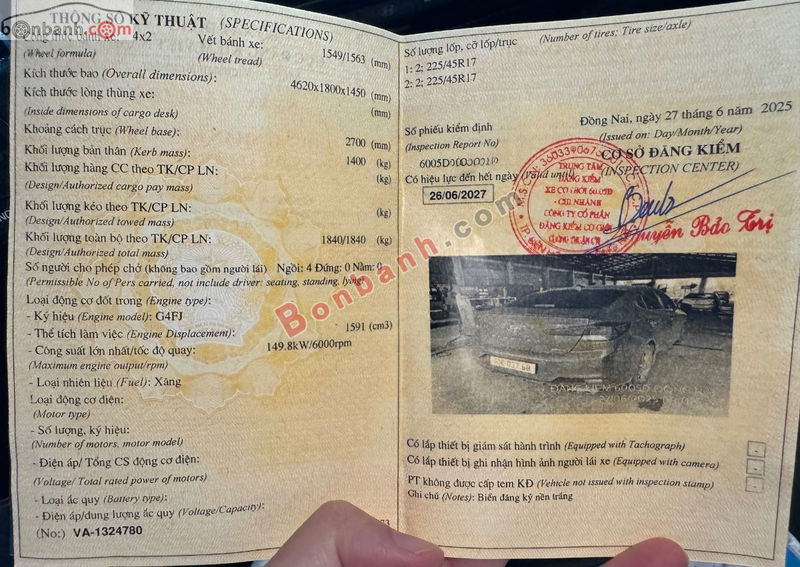 THÔNG SỐ KỸ THUẬT (SPECIFICATIONS)
bonbanh.com
4x2
(Wheel formula)
Vết bánh xe: 1549/1563 (mm)
(Wheel tread)
Kích thước bao (Overall dimensions): 4620x1800x1450 (mm)
Kích thước lòng thùng xe:
(Inside dimensions of cargo desk) (mm)
Khoảng cách trục (Wheel base): 2700 (mm)
Khối lượng bản thân (Kerb mass) 1400 (kg)
Khối lượng hàng CC theo TK/CP LN: (kg)
(Design/Authorized cargo pay mass)
Khối lượng kéo theo TK/CP LN: (kg)
(Design/Authorized towed mass)
Khối lượng toàn bộ theo TK/CP LN: 1840/1840 (kg)
(Design/Authorized total mass)
Số người cho phép chở (không bao gồm người lái) Ngồi: 4 Đứng: 0 Nằm: 0
(Permissible No of Pers carried, not include driver: seating, standing, lying)
Loại động cơ đốt trong (Engine type):
- Ký hiệu (Engine model): G4FJ
- Thể tích làm việc (Engine Displacement): 1591 (cm3)
- Công suất lớn nhất/tốc độ quay: 149.8kW/6000rpm
(Maximum engine output/rpm)
- Loại nhiên liệu (Fuel): Xăng
Loại động cơ điện:
(Motor type)
- Số lượng, ký hiệu:
(Number of motors, motor model)
- Điện áp/ Tổng CS động cơ điện:
(Voltage/ Total rated power of motors)
- Loại ắc quy (Battery type):
- Điện áp/dung lượng ắc quy (Voltage/Capacity):
(No:) VA-1324780
Số lượng lốp, cỡ lốp/trục (Number of tires; Tire size/axle)
1: 2; 225/45R17
2: 2; 225/45R17
Đồng Nai, ngày 27 tháng 6 năm 2025
(Issued on: Day/Month/Year)
Số phiếu kiểm định
(Inspection Report No)
CƠ SỞ ĐĂNG KIỂM
(INSPECTION CENTER)
Có hiệu lực đến hết ngày (Valid until)
26/06/2027
TRUNG TÂM
ĐĂNG KIỂM
XE CƠ GIỚI 6005D
- CHI NHÁNH
CÔNG TY CỔ PHẦN
ĐĂNG KIỂM CƠ GIỚI
Nguyễn Bảo Trị
Bonbanh.com
Có lắp thiết bị giám sát hành trình (Equipped with Tachograph)
Có lắp thiết bị ghi nhận hình ảnh người lái xe (Equipped with camera)
PT không được cấp tem KĐ (Vehicle not issued with inspection stamp)
Ghi chú (Notes): Biển đăng ký nền trắng